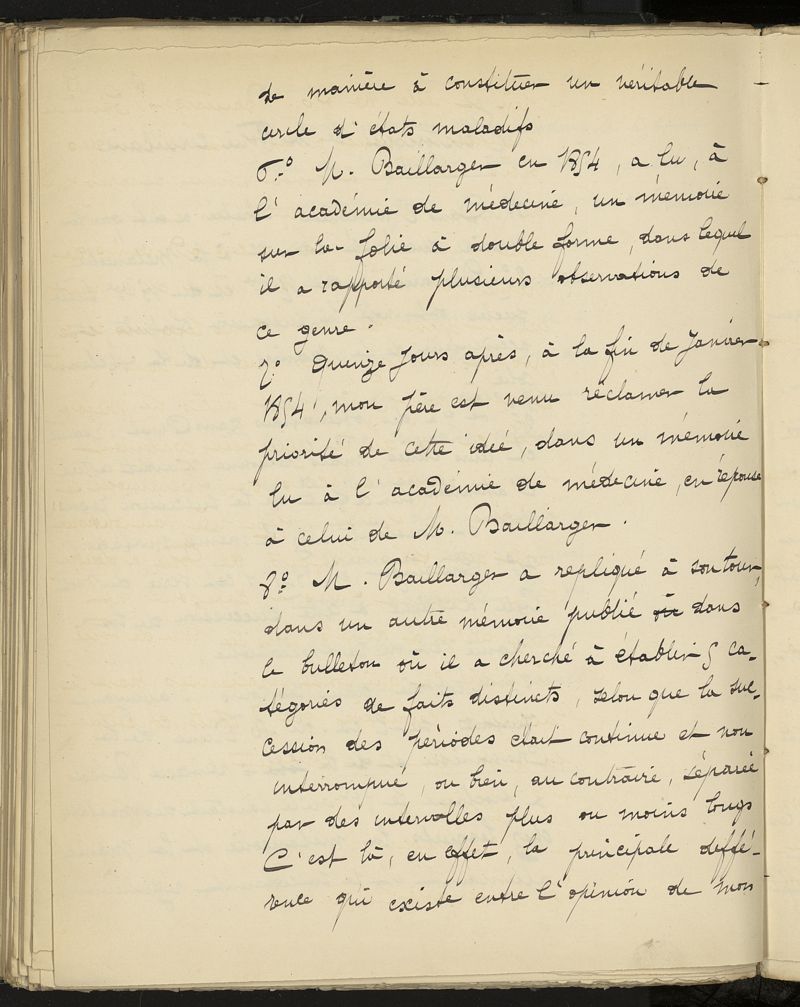 de manière à constituer un véritable
cercle d'états maladifs
6.º M. Baillarger en 1854, a lu, à
l'académie de médecine, un mémoire
sur la folie à double forme, dans lequel
il a rapporté plusieurs observations de
ce genre.
7.º Quinze jours après, à la fin de Janvier
1854, mon père est venu réclamer la
priorité de cette idée, dans un mémoire
lu à l'académie de médecine, en réponse
à celui de M. Baillarger.
8.º M. Baillarger a repliqué à son tour,
dans un autre mémoire publié dans
le bulleton où il a cherché à établir 5 ca-
tégories de faits distincts, selon que la suc-
cession des périodes était continue et non
interrompue, ou bien, au contraire, séparée
par des intervalles plus ou moins longs
C'est là, en effet, la principale deffé-
rence qui existe entre l'opinion de mon